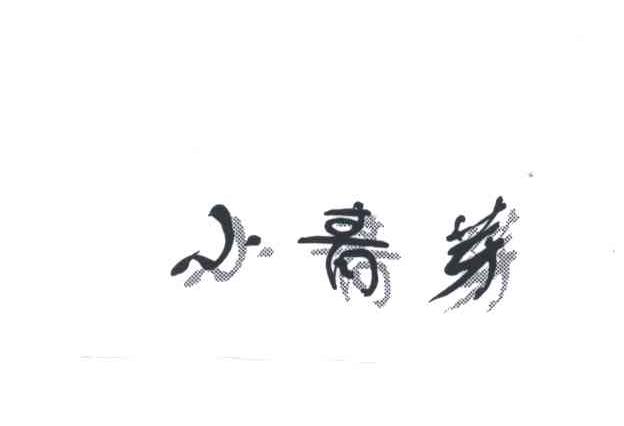 小青芽